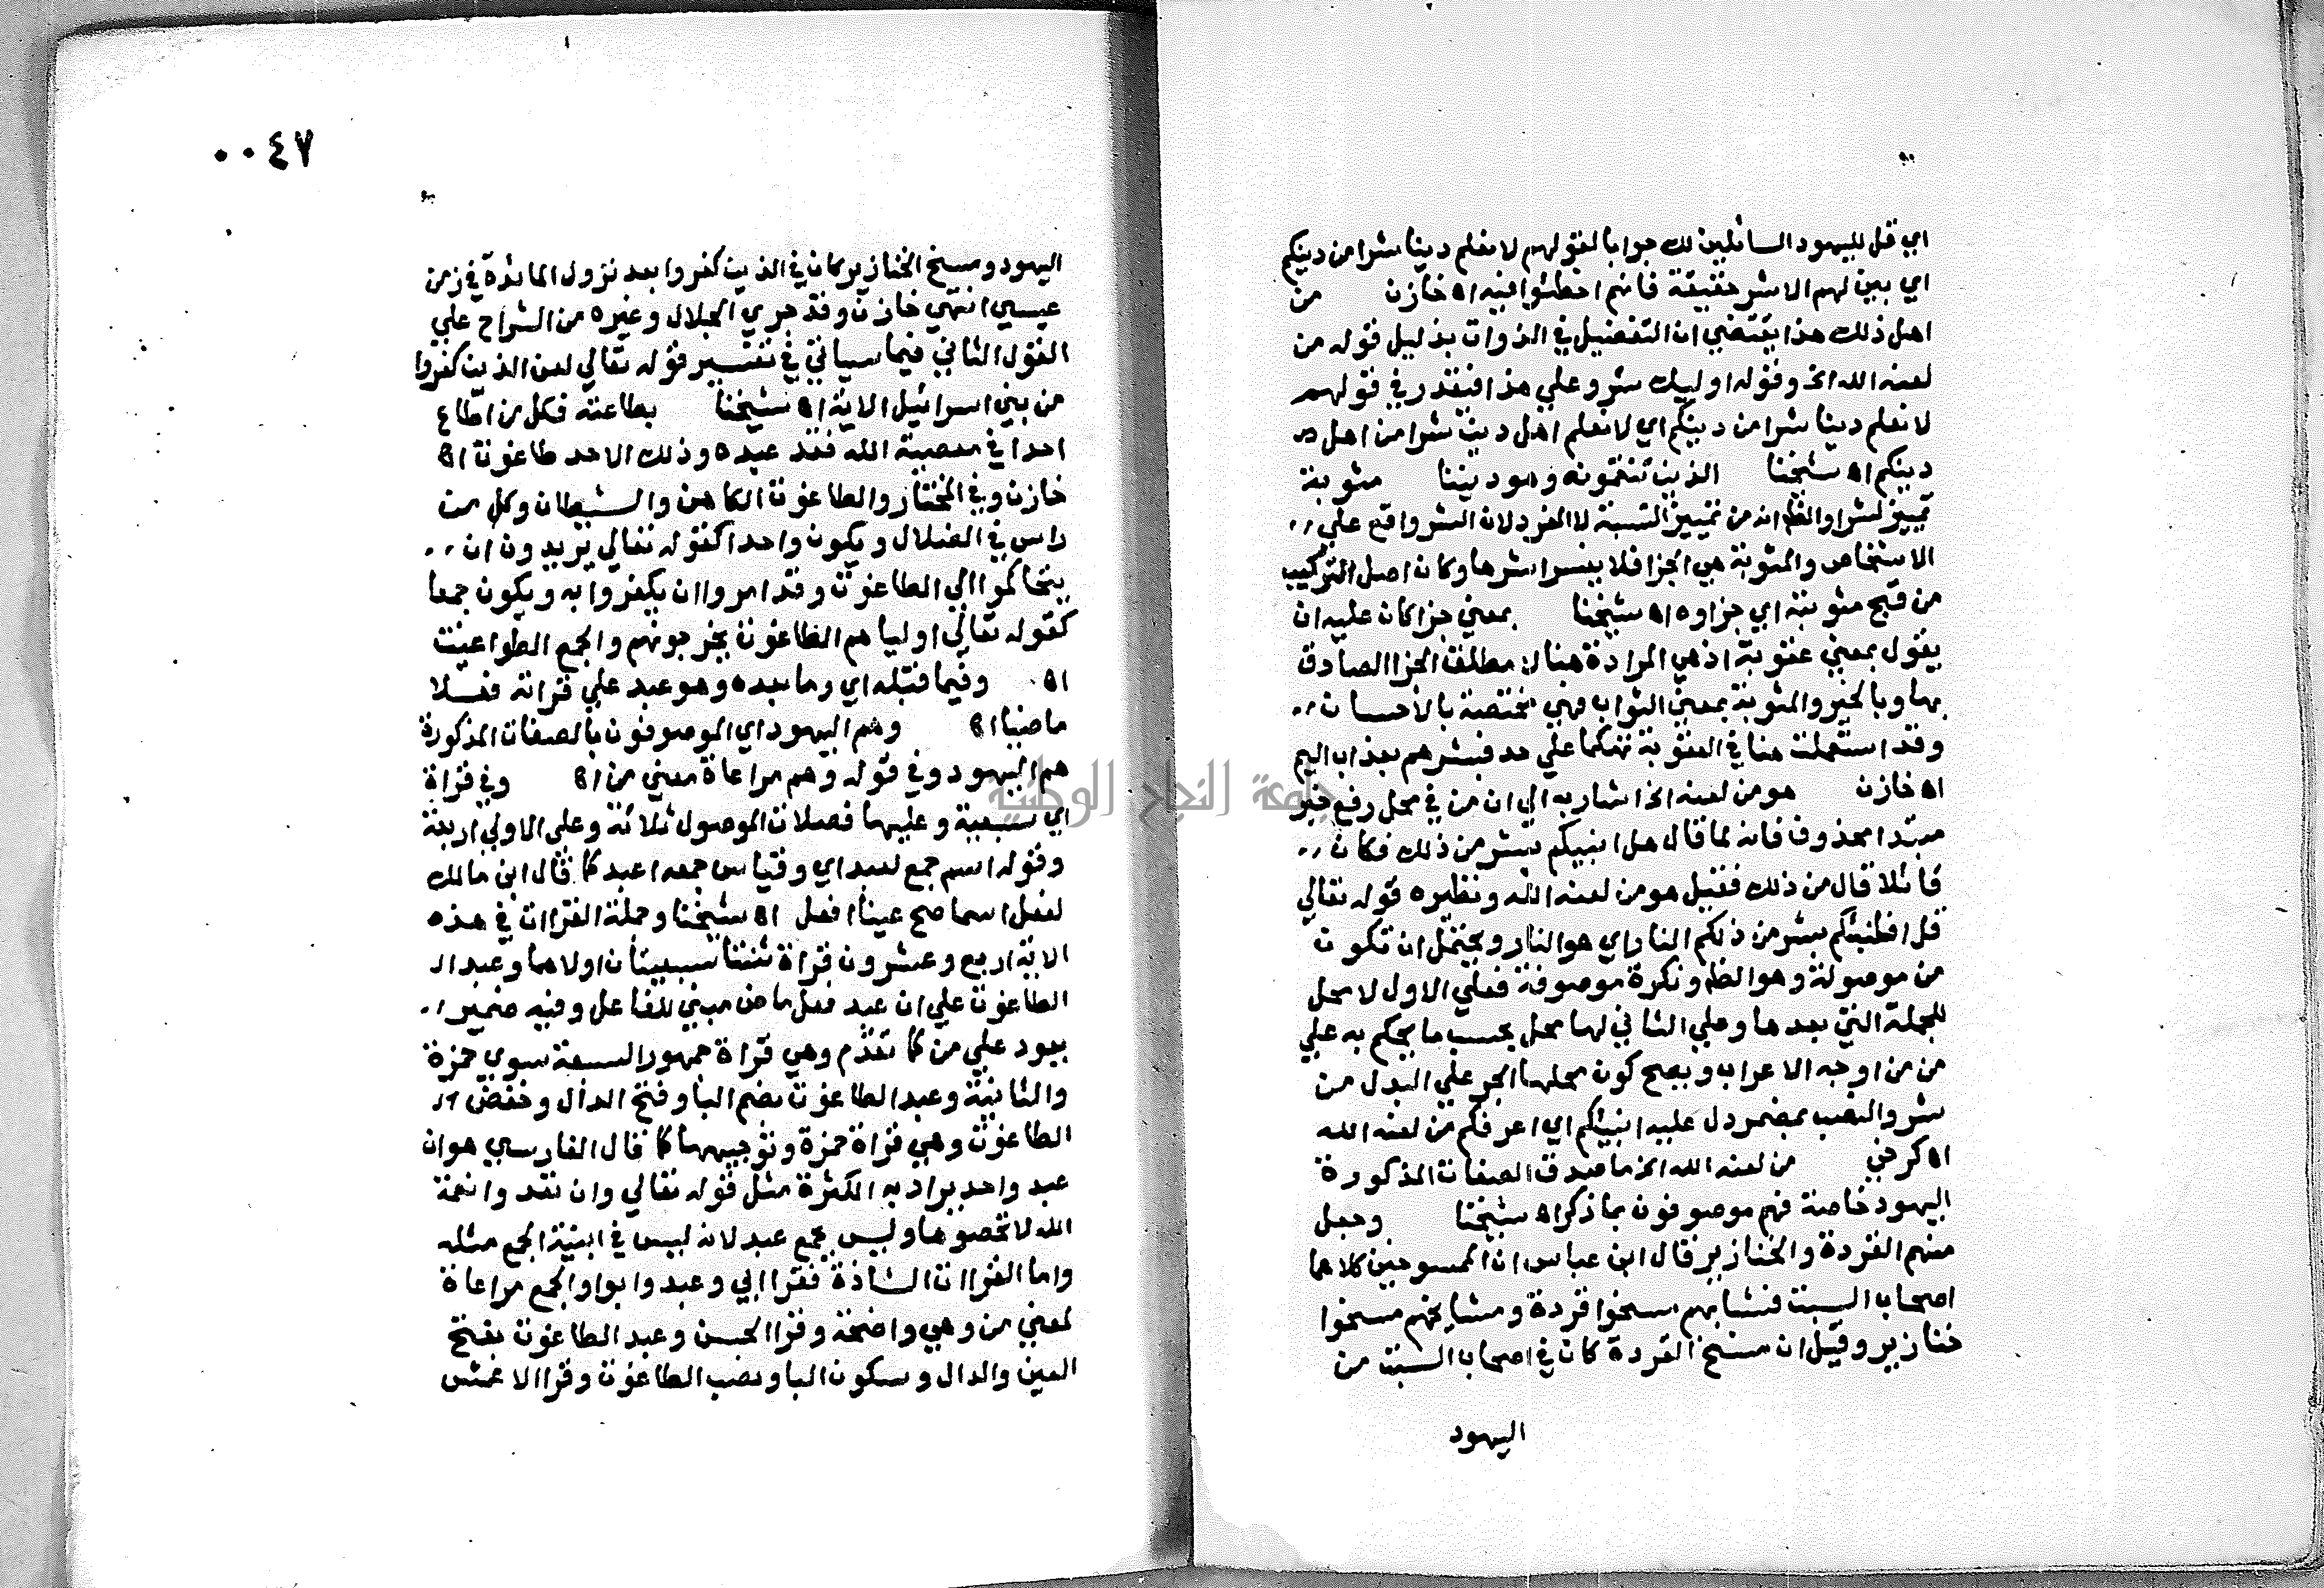 اي قل لليهود السائلين لك جوابا لقولهم لا نعلم دينا شرا من دينكم
اي بين لهم الاشر حقيقة فانهم اخطئوا فيه اه خازن من
اهل ذلك هذا يقتضي ان التفضيل في الذوات بدليل قوله من
لعنه الله الخ وقوله اوليك شر وعلي هذا فيقدر في قولهم
لا نعلم دينا شرا من دينكم اي لا نعلم اهل دين شرا من اهل
دينكم اه شيخنا الذين تنقمونه وهو ديننا مثوبة
تمييز لشر والظ انه من تمييز النسبة لا المفرد لان الشر واقع علي
الاشخاص والمثوبة هي الجزا فلا يفسر اشرها وكان اصل التركيب
من قبح مثوبته اي جزاوه اه شيخنا بمعني جزا كان عليه ان
يقول بمعني عقوبة اذ هي المرادة هنا لا مطلق الجزا الصادق
بها وبالخير والمثوبة بمعني الثواب فهي مختصة بالاحسان
وقد استعملت هنا في العقوبة تهكما علي حد فبشرهم بعذاب اليم
اه خازن هو من لعنه الخ اشار به الي ان من في محل رفع خبر
مبتدا محذوف فانه لما قال هل انبيكم بشر من ذلك فكان
قائلا قال من ذلك فقيل هو من لعنه الله ونظيره قوله تعالي
قل افانبئكم بشر من ذلكم النار اي هو النار ويحتمل ان تكون
من موصولة وهو الظ ونكرة موصوفة فعلي الاول لا محل
للجملة التي بعدها وعلي الثاني لها محل بحسب ما يحكم به علي
من من اوجه الاعراب ويصح كون محلها الجر علي البدل من
شر والنصب بمضمر دل عليه انبيكم اي اعرفكم من لعنه الله
اه كرخي من لعنه الله الخ ما صدق الصفات المذكورة
اليهود خاصة فهم موصوفون بما ذكر اه شيخنا وجعل
منهم القردة والخنازير قال ابن عباس ان الممسوخين كلاهما
اصحاب السبت فشبابهم مسخوا قردة ومشايخهم مسخوا
خنازير وقيل ان مسخ القردة كان في اصحاب السبت من
اليهود
٠٠٤٧
اليهود ومسخ الخنازير كان في الذين كفروا بعد نزول المائدة في زمن
عيسي انتهي خازن وقد جري الجلال وغيره من الشراح علي
القول الثاني فيما سياتي في تفسير قوله تعالي لعن الذين كفروا
من بني اسرائيل الاية اه شيخنا بطاعته فكل من اطاع
احدا في معصية الله فقد عبده وذلك الاحد طاغوت اه
خازن وفي المختار والطاغوت الكاهن والشيطان وكل من
راس في الضلال ويكون واحدا كقوله تعالي يريدون ان
يتحاكموا الي الطاغوت وقد امروا ان يكفروا به ويكون جمعا
كقوله تعالي اولياهم الطاغوت يخرجونهم والجمع الطواغيت
اه وفيما قبله اي وما بعده وهو عبد علي قراته فعلا
ماضيا اه وهم اليهود اي الموصوفون بالصفات المذكورة
هم اليهود وفي قوله وهم مراعاة معني من اه وفي قراة
اي سبعية وعليها فصلات الموصول ثلاثة وعلي الاولي اربعة
وقوله اسم جمع لعبد اي وقياس جمعه اعبد كما قال ابن مالك
لفعل اسما صح عينا افعل اه شيخنا وجملة القراات في هذه
الاية اربع وعشرون قراة ثنتا سبعيتان اولاهما وعبد ال
الطاغوت علي ان عبد فعل ماض مبني للفاعل وفيه ضمير
يعود علي من كما تقدم وهي قراة جمهور السبعة سوي حمزة
والثانية وعبد الطاغوت بضم البا وفتح الدال وخفض
الطاغوت وهي قراة حمزة وتوجيهها كما قال الفارسي هو ان
عبد واحد يراد به الكثرة مثل قوله تعالي وان تعدوا نعمة
الله لا تحصوها وليس بجمع عبد لانه ليس في ابنية الجمع مثله
واما القراات الشاذة فقرا ابي وعبدوا بواو الجمع مراعاة
لمعني من وهي واضحة وقرا الحسن وعبد الطاغوت بفتح
العين والدال وسكون البا ونصب الطاغوت وقرا الاعمش
جامعة النجاح الوطنية